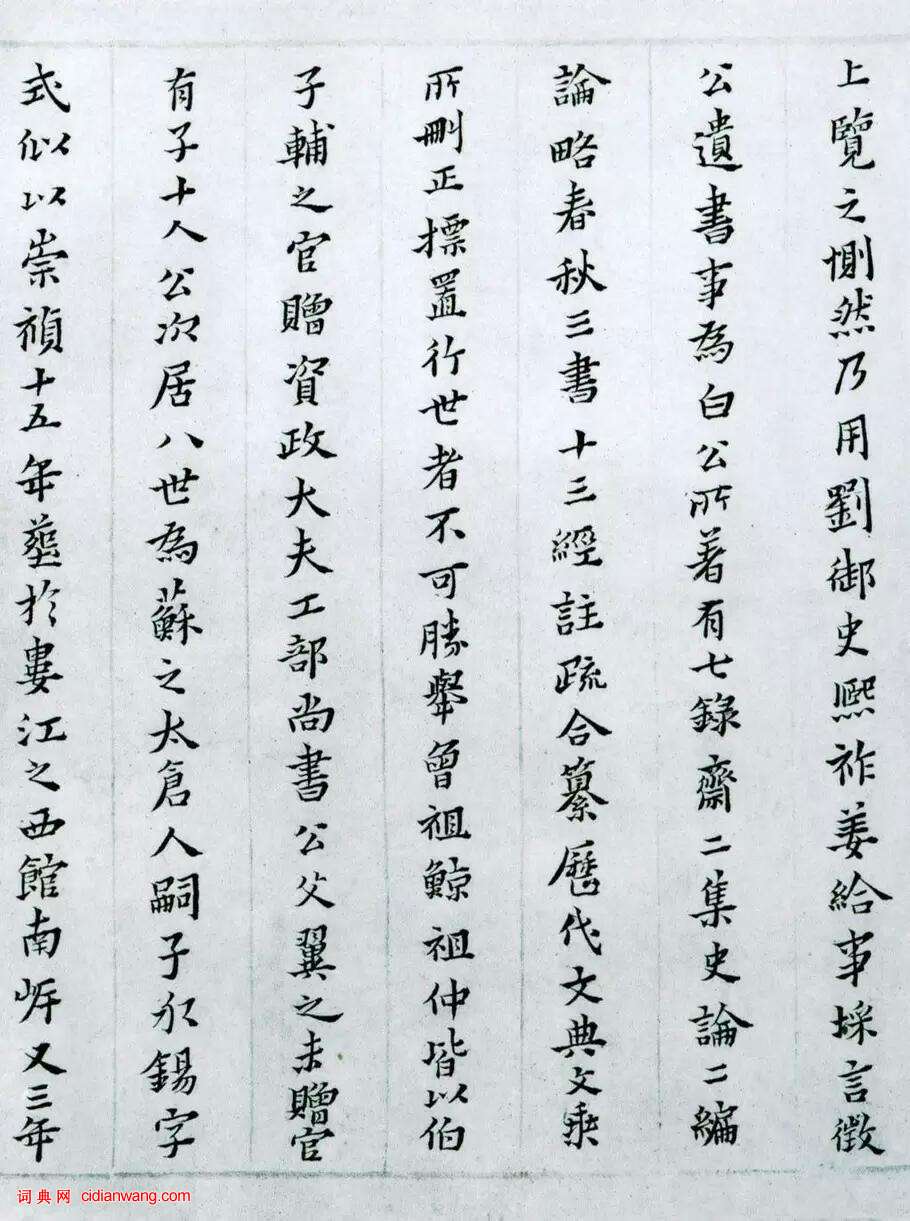 上覽之惻然乃用劉御史熙祚姜給事埰言徵
公遺書事為白公所著有七錄齋二集史論二編
論略春秋三書十三經註疏合纂曆代文典文乘
所刪正摽置行世者不可勝舉曾祖鯨祖仲皆以伯
子輔之官贈資政大夫工部尚書公父翼之未贈官
有子十人公次居八世為蘇之太倉人嗣子永錫字
式似以崇禎十五年塟於婁江之西館南岍又三年
词典网 cidianwang.com